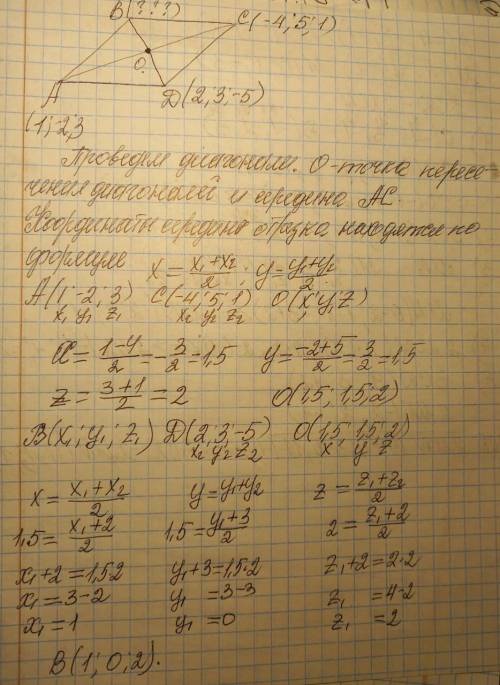 B(???)
C(-4; 5; 1)
O.
A
D(2; 3; -5)
(1; -2; 3
Проведем диагонали. O-точка пересе-
чения диагоналей и середина AC.
Координаты середины отрезка находятся по
формуле x = (x₁+x₂)/2; y = (y₁+y₂)/2
A(1; -2; 3) C(-4; 5; 1) O(x; y; z)
x₁ y₁ z₁ x₂ y₂ z₂
x = (1-4)/2 = -3/2 = 1,5 y = (-2+5)/2 = 3/2 = 1,5
z = (3+1)/2 = 2 O(1,5; 1,5; 2)
B(x₁; y₁; z₁) D(2; 3; -5) O(1,5; 1,5; 2)
x₂ y₂ z₂ x y z
x = (x₁+x₂)/2 y = y₁+y₂ z = (z₁+z₂)/2
1,5 = (x₁+2)/2 1,5 = (y₁+3)/2 2 = (z₁+2)/2
x₁+2 = 1,5·2 y₁+3 = 1,5·2 z₁+2 = 2·2
x₁ = 3-2 y₁ = 3-3 z₁ = 4-2
x₁ = 1 y₁ = 0 z₁ = 2
B(1; 0; 2).